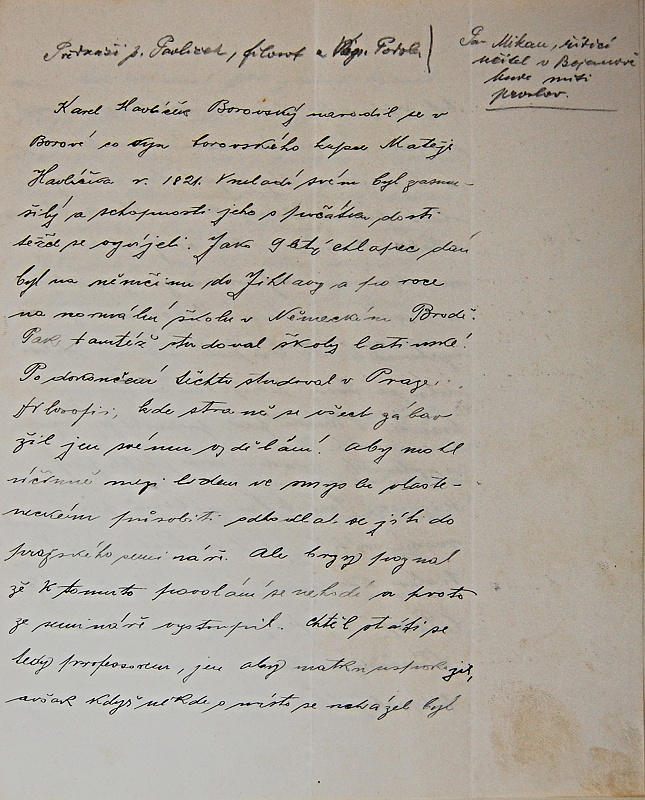 Přednáší p. Pavlíček, filosof a
Pan Mikan, řídící
učitel v Bojanově
bude míti
proslov.
Karel Havlíček Borovský narodil se v
Borové co syn borovského kupce Matěje
Havlíčka r. 1821. V mládí svém byl zasmu-
šilý a schopnosti jeho s počátku dosti
těžce se vyvíjeli. Jako 9 letý chlapec dán
byl na němčinu do Jihlavy a po roce
na normální školu v Německém Brodě.
Pak tamtéž studoval školy latinské.
Po dokončení těchto studoval v Praze
filosofii, kde straně se všech zábav
žil jen svému vzdělání. Aby mohl
účinně mezi lidem ve smyslu vlaste-
neckém působiti odhodlal se jíti do
pražského semináře. Ale brzy poznal
že k tomuto povolání se nehodí a proto
ze semináře vystoupil. Chtěl státi se
tedy professorem, jen aby matku uspokojil,
avšak když někde o místo se ucházel byl